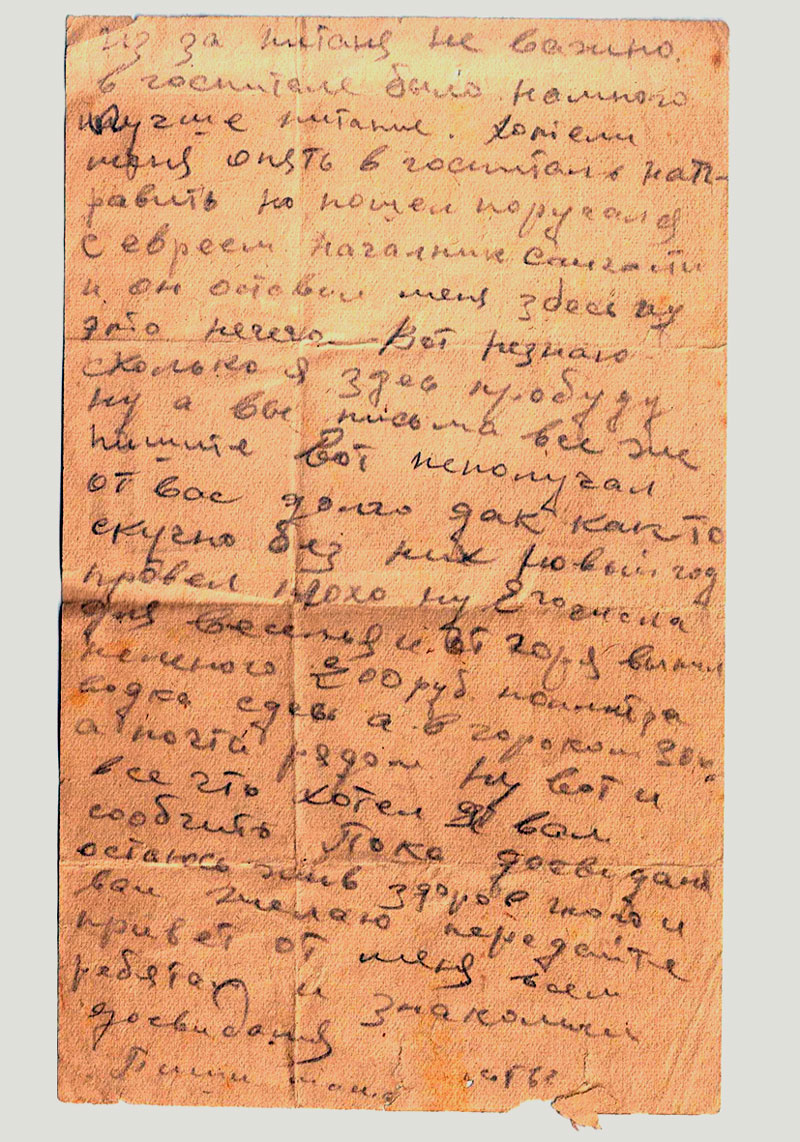 из за питаня не важно.
в госпитале было намного
лучше питание. Хотели
меня опять в госпиталь нап-
равить но пошел поругался
с евреем началник санчасти
и он оставил меня здесь ну
это нечего. Вот незнаю
сколько я здес пробуду
ну а вы письма все же
пишите Вот неполучал
от вас долго дак как-то
скучно без них новый год
провел плохо ну
для веселья и от горя выпил
немного 200 руб поллитра
водка сдесь а в гороком
а почти рядом ну вот и
все что хотел я вам
сообчить Пока досвиданя
остаюсь жив здоров того и
вам желаю передайте
привет от меня всем
ребятам и знакомым
досвидания
Пиши мама